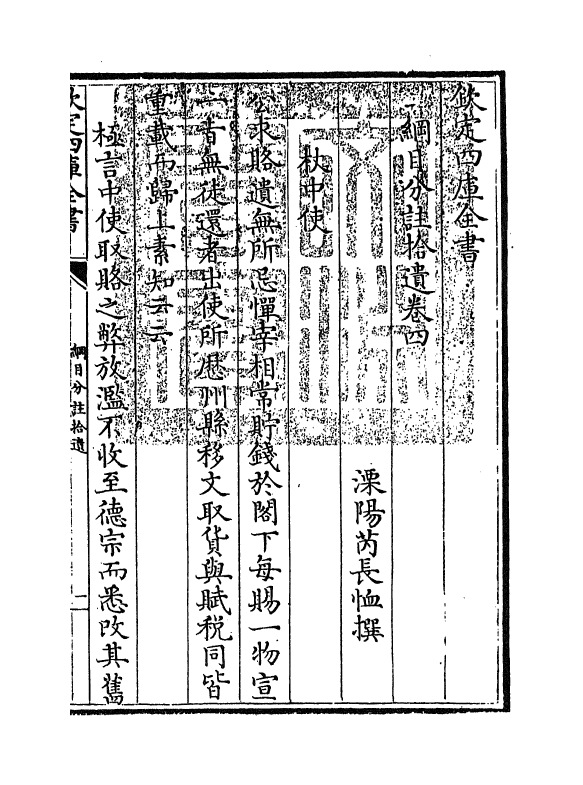 欽定四庫全書
綱目分註拾遺卷四
溧陽芮長恤撰
杖中使
公求賂遺無所忌憚宰相常貯錢於閣下每賜一物宣
一旨無徒還者出使所歷州縣移文取貨與賦税同皆
重載而歸上素知云云
極言中使取賂之弊放濫不收至德宗而悉改其舊
欽定四庫全書
綱目分註拾遺